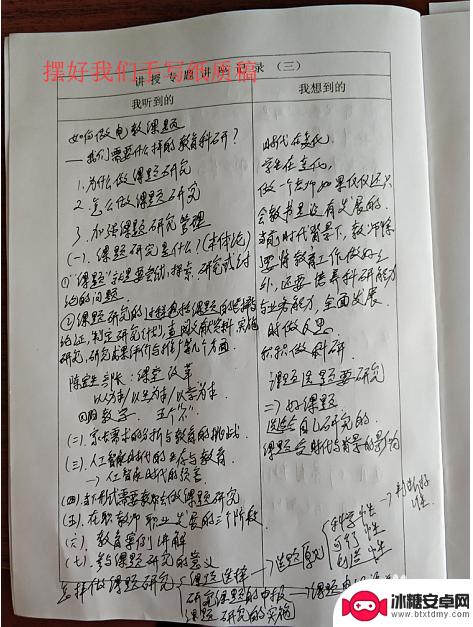 摆好我们手写纸质稿
讲授专题讲座记录（三）
我听到的
我想到的
如何做电教课题
——我们需要什么样的教育科研？
1.为什么做课题研究
2.怎么做课题研究
3.加强课题研究管理
(一).课题研究是什么？(本体论)
①"课题"就是要尝试,探索,研究或讨
论的问题.
②课题研究的过程包括课题的选择
论证,制定研究计划,查阅文献资料,实施
研究,研究成果评价与推广等几个方面.
课堂改革
以为本/以生为本/以学为本.
(二).需求的分析与教育的挑战.
(三).人工智能时代的生存与教育
→人工智能时代的
(四).当下形式需要教师会做课题研究
(五).在职教师职业发展的三个阶段.
(六).教育案例讲解
(七).参与课题研究的意义
怎样做课题研究
课题选择
研究课题的申报
课题研究的实施
选题原则
科学性
可行性
创造性
时代在变化
学生在变化,
做一个老师如果仅仅还只
会教书是没有发展的.
当前时代背景下,教师除
要将教育工作做好之
外,还要培养科研能力
与业务能力,全面发展.
时做反思
积极做科研
课题选题要研究
二)好课题
适合自己研究的.
课题受时代背景的影响
冰糖安卓网